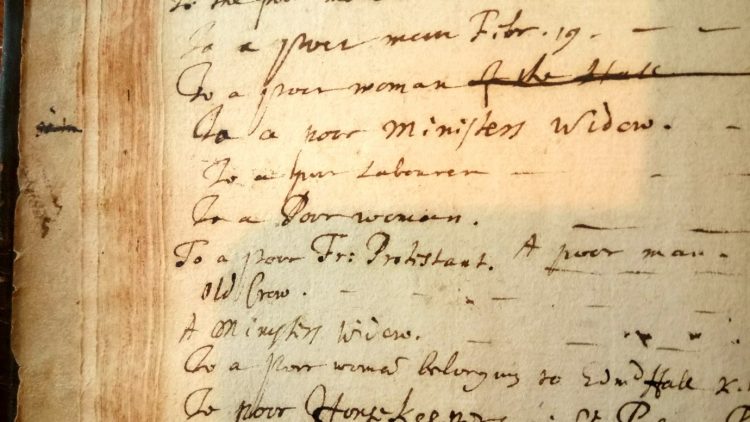 To the poor
To a poor man Febr. 19. - - -
To a poor woman of the Hall
To a poore Ministers Widow. -
To a poor Labourer - -
To a Poor woman. - -
To a poore Fr: Protestant. A poor man -
Old Crow. - - - - -
A Ministers Widow. - - -
To a poor woman belonging to Edmd Hall
To poor Housekeepers in St.